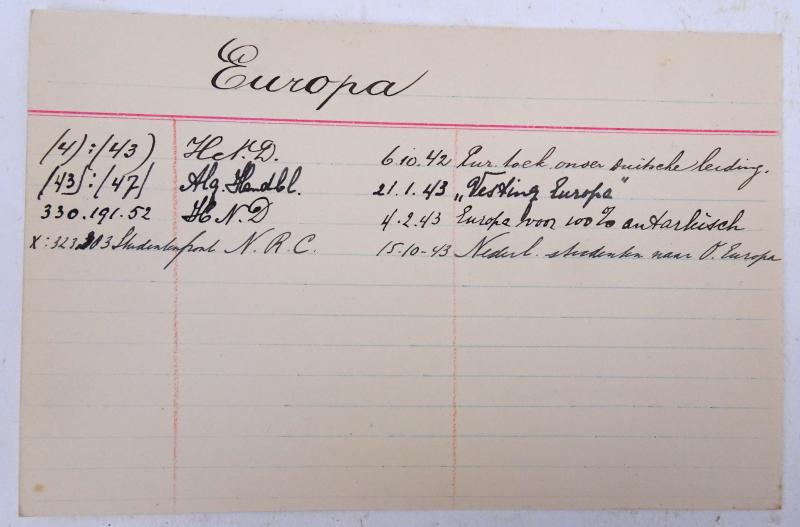 Europa
(4):(43) H.N.D. 6.10.42 Eur. toek. onder Duitsche leiding.
(43):(47) Alg. Handbl. 21.1.43 „Vesting Europa"
330.191.52 H N D 4.2.43 Europa voor 100% autarkisch
x:323 Studentenfront N.R.C. 15-10-43 Nederl. studenten naar O. Europa